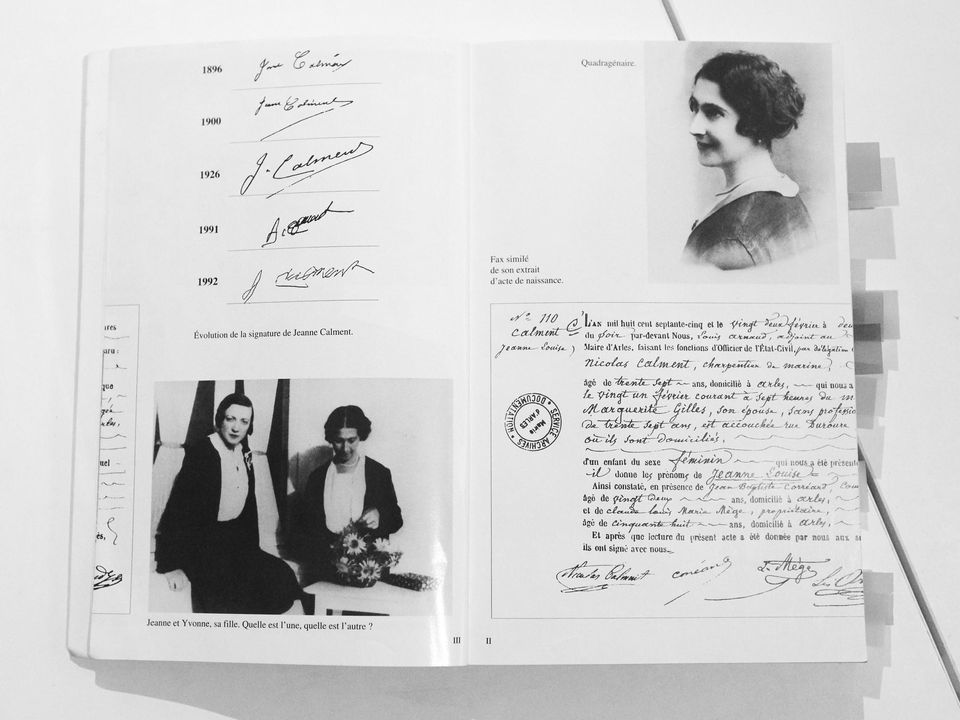 1896 Jne Calment
1900 Jeanne Calment
1926 J. Calment
1991
1992 J Calment
Évolution de la signature de Jeanne Calment.
Jeanne et Yvonne, sa fille. Quelle est l'une, quelle est l'autre ?
III
Quadragénaire.
Fax similé
de son extrait
d'acte de naissance.
N° 110
Calment
Jeanne Louise
L'AN mil huit cent septante-cinq et le vingt deux février à
du soir par-devant Nous, Louis Arnaud, adjoint au
Maire d'Arles, faisant les fonctions d'Officier de l'État-Civil, par délégation
Nicolas Calment, charpentier de marine,
âgé de trente sept ans, domicilié à Arles, qui nous a
le vingt un février courant à sept heures du m
Marguerite Gilles, son épouse, sans professio
de trente sept ans, est accouchée rue
où ils sont domiciliés.
d'un enfant du sexe féminin qui nous a été présenté
il donne les prénoms de Jeanne Louise
Ainsi constaté, en présence de Jean Baptiste
âgé de vingt deux ans, domicilié à Arles,
et de Claude Louis Marie Mège, propriétaire,
âgé de cinquante huit ans, domicilié à Arles,
Et après que lecture du présent acte a été donnée par nous aux
ils ont signé avec nous.
Nicolas Calment
L. Mège
SERVICE ARCHIVES DOCUMENTATION
Mairie
d'ARLES
II